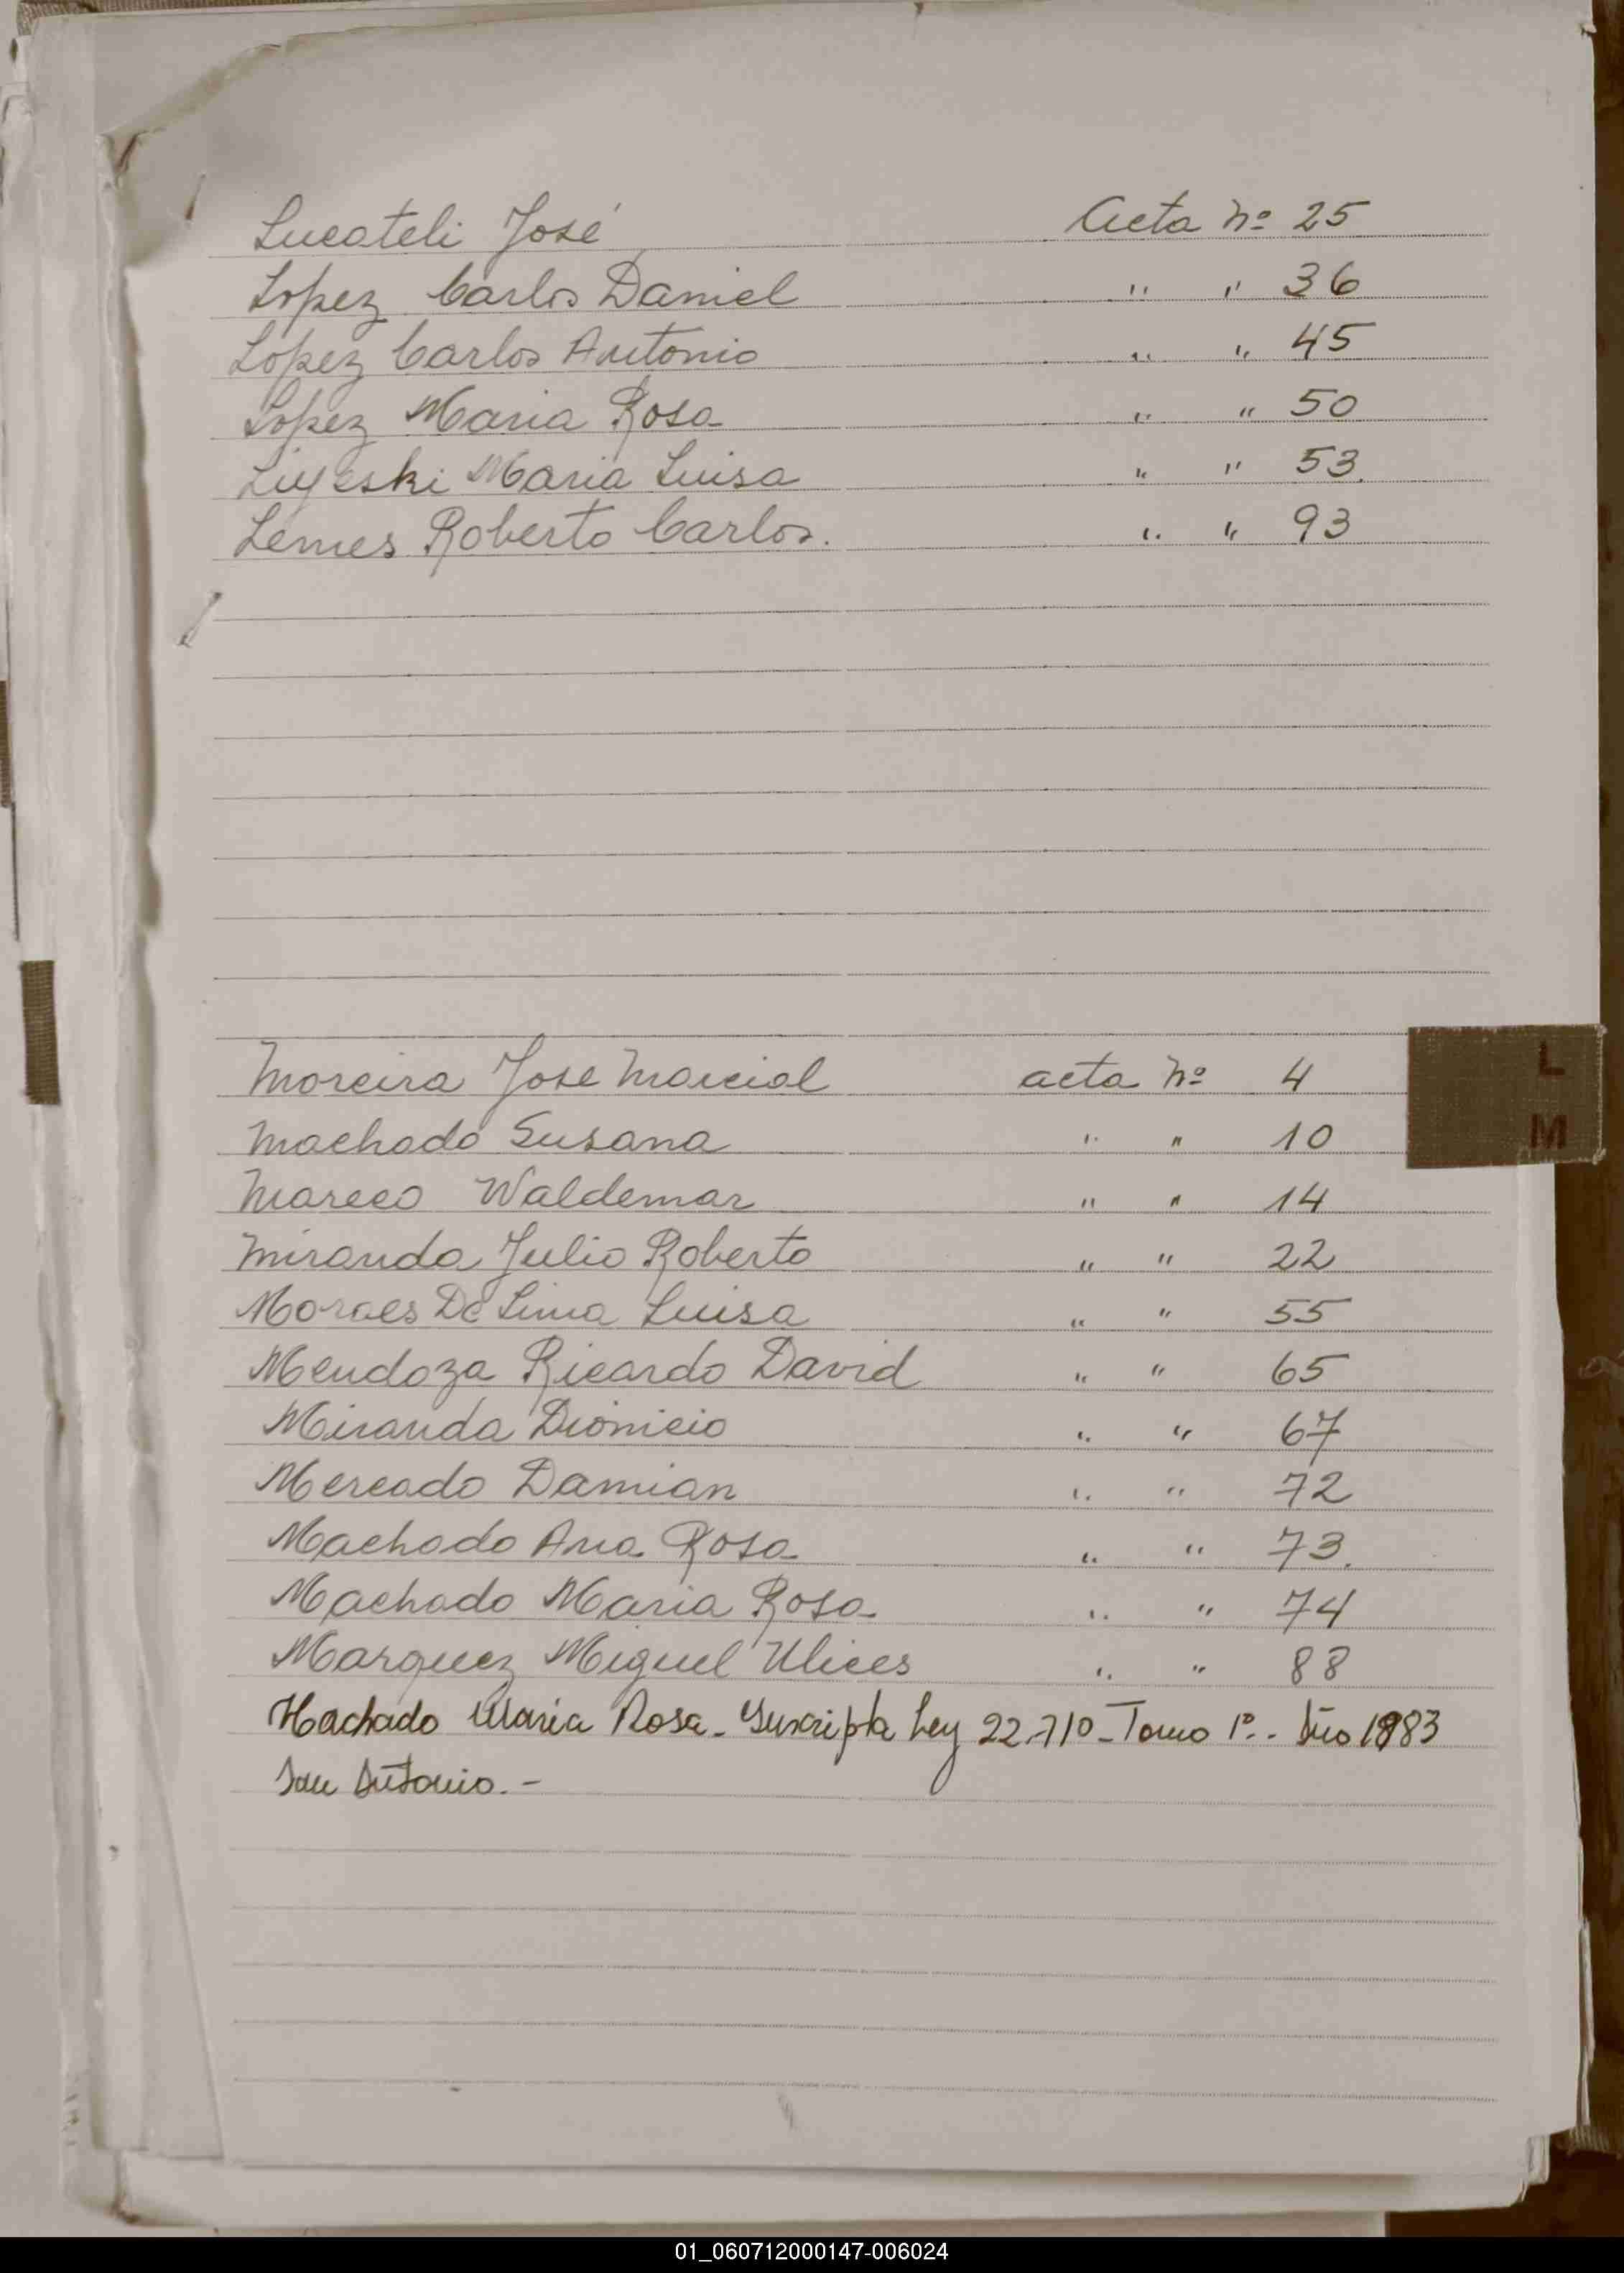 Lucateli José Acta Nº 25
Lopez Carlos Daniel " " 36
Lopez Carlos Antonio " " 45
Lopez Maria Rosa " " 50
Maria Luisa " " 53.
Lemes Roberto Carlos. " " 93
Moreira Jose Marcial acta Nº 4
L
M
Machado Susana " " 10
Mareco Waldemar " " 14
Miranda Julio Roberto " " 22
Moraes De Lima Luisa " " 55
Mendoza Ricardo David " " 65
Miranda Dionicio " " 67
Mercado Damian " " 72
Machado Ana Rosa " " 73.
Machado Maria Rosa " " 74
Marquez Miguel Ulices " " 88
Machado Maria Rosa - Inscripta Ley 22.710 - Tomo 1º.- Año 1983
San Antonio. -
01_060712000147-006024